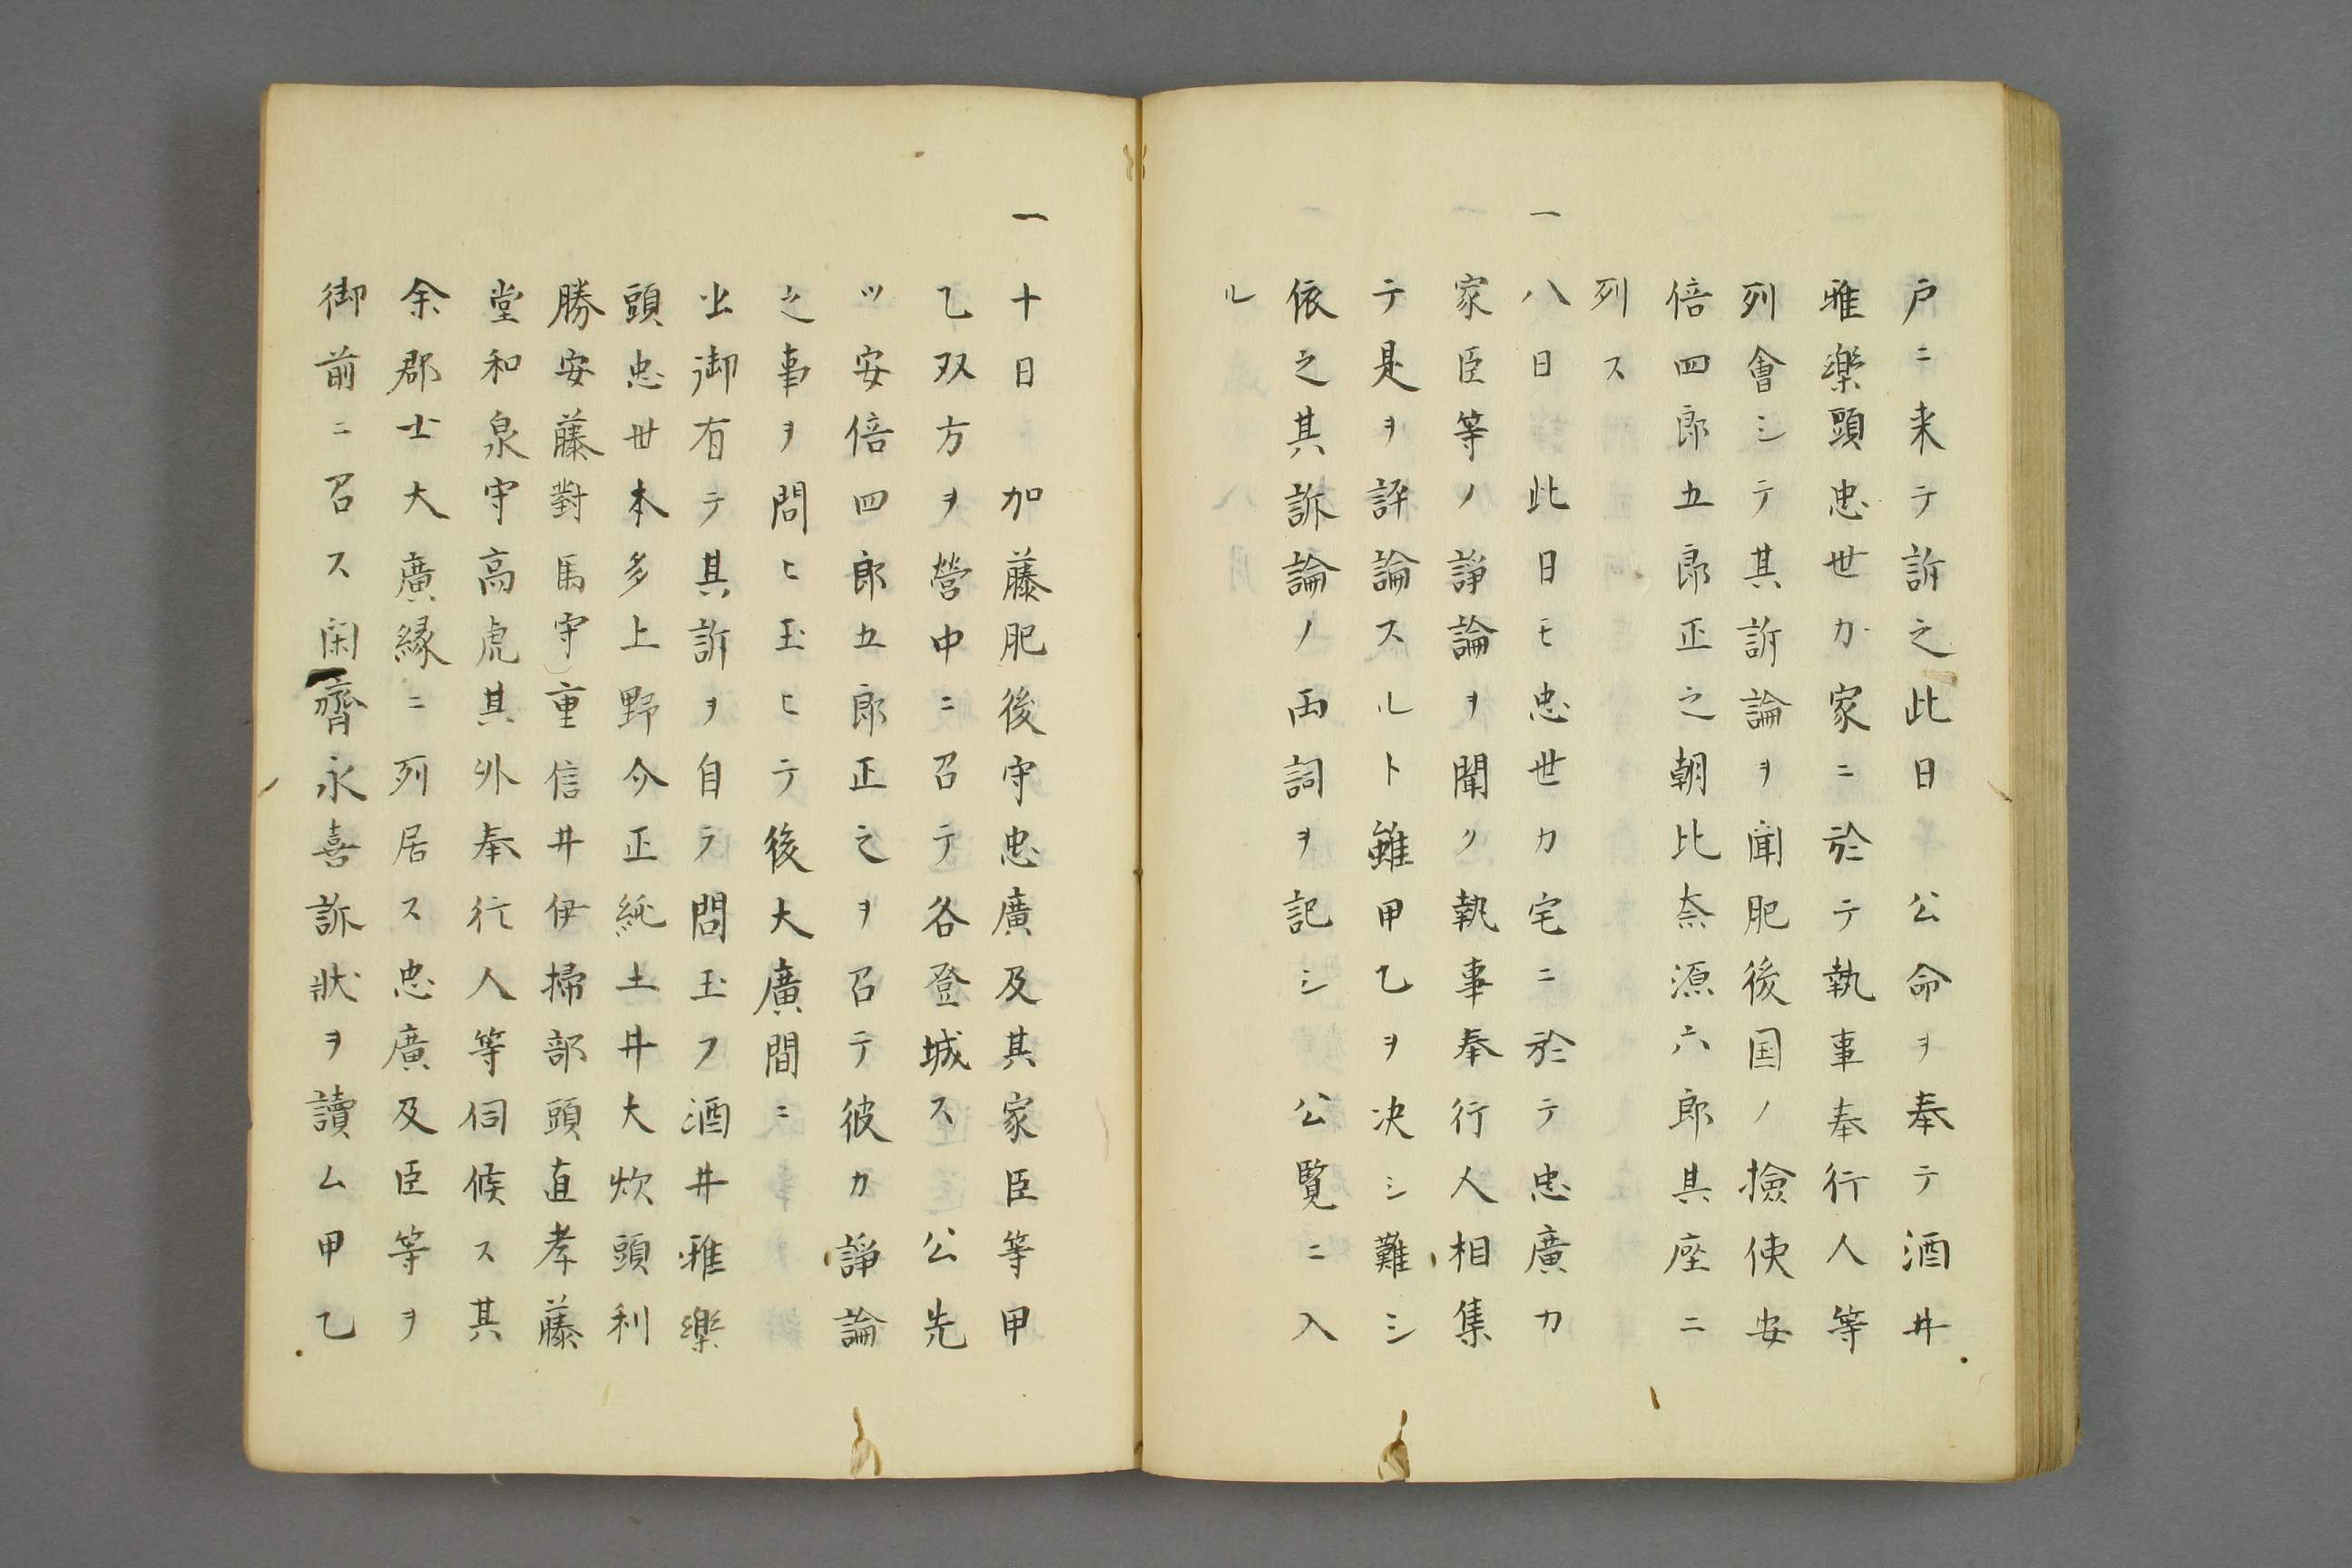 戸ニ来テ訴之此日　公命ヲ奉テ酒井
雅樂頭忠世カ家ニ於テ執事奉行人等
列會シテ其訴論ヲ聞肥後国ノ撿使安
倍四郎五郎正之朝比奈源六郎其座ニ
列ス
一八日　此日モ忠世カ宅ニ於テ忠廣カ
家臣等ノ諍論ヲ聞ク執事奉行人相集
テ是ヲ評論スルト雖甲乙ヲ决シ難シ
依之其訴論ノ両詞ヲ記シ　公覽ニ入
ル
一十日　加藤肥後守忠廣及其家臣等甲
乙双方ヲ營中ニ召テ各登城ス　公先
ツ安倍四郎五郎正之ヲ召テ彼カ諍論
之事ヲ問ヒ玉ヒテ後大廣間ニ
出御有テ其訴ヲ自ラ問玉フ酒井雅樂
頭忠世本多上野介正純土井大炊頭利
勝安藤對馬守重信井伊掃部頭直孝藤
堂和泉守高虎其外奉行人等伺候ス其
余郡士大廣縁ニ列居ス忠廣及臣等ヲ
御前ニ召ス閑齋永喜訴狀ヲ讀ム甲乙